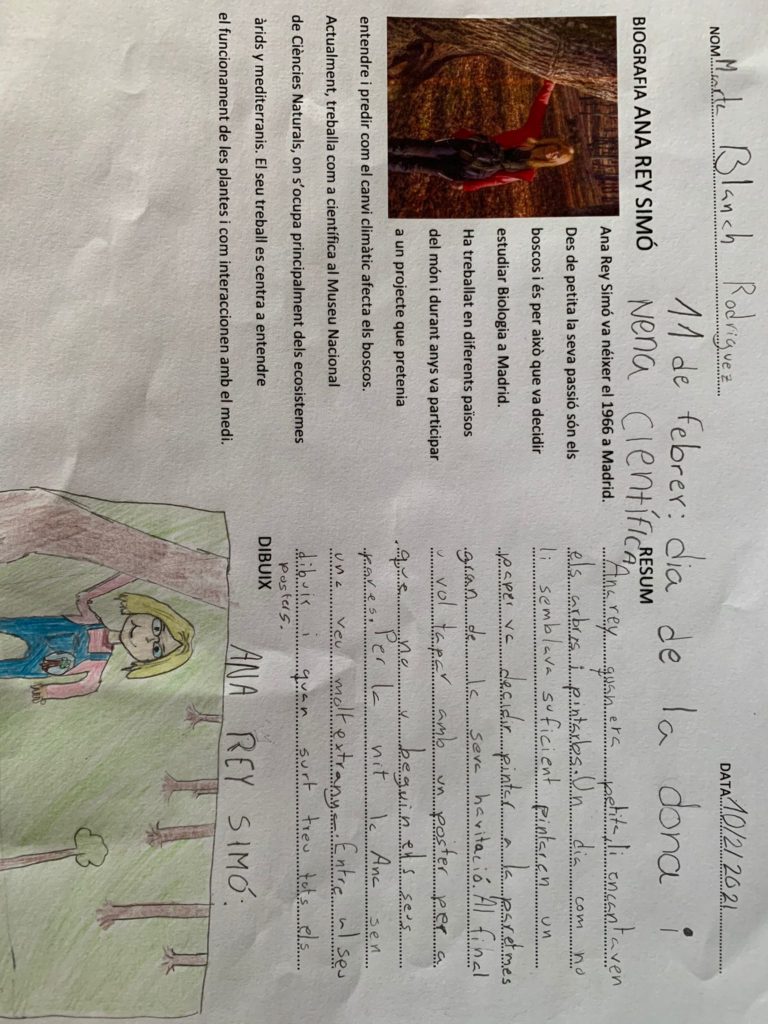 NOM Marta Blanch Rodriguez
DATA 10/2/2021
11 de febrer: dia de la dona i
nena científica
BIOGRAFIA ANA REY SIMÓ
Ana Rey Simó va néixer el 1966 a Madrid.
Des de petita la seva passió són els
boscos i és per això que va decidir
estudiar Biologia a Madrid.
Ha treballat en diferents països
del món i durant anys va participar
a un projecte que pretenia
entendre i predir com el canvi climàtic afecta els boscos.
Actualment, treballa com a científica al Museu Nacional
de Ciències Naturals, on s'ocupa principalment dels ecosistemes
àrids y mediterranis. El seu treball es centra a entendre
el funcionament de les plantes i com interaccionen amb el medi.
RESUM
Ana rey quan era petita, li encantaven
els arbres i pintarlos. Un dia com no
li semblava suficient pintaren un
paper va decidir pintar a la paret mes
gran de la seva havitació. Al final
u vol tapar amb un poster per a
que no u beguin els seus
pares. Per la nit la Ana sen
una veu molt extranya. Entre al seu
dibuix i quan surt treu tots els
posters.
DIBUIX
ANA REY SIMÓ: